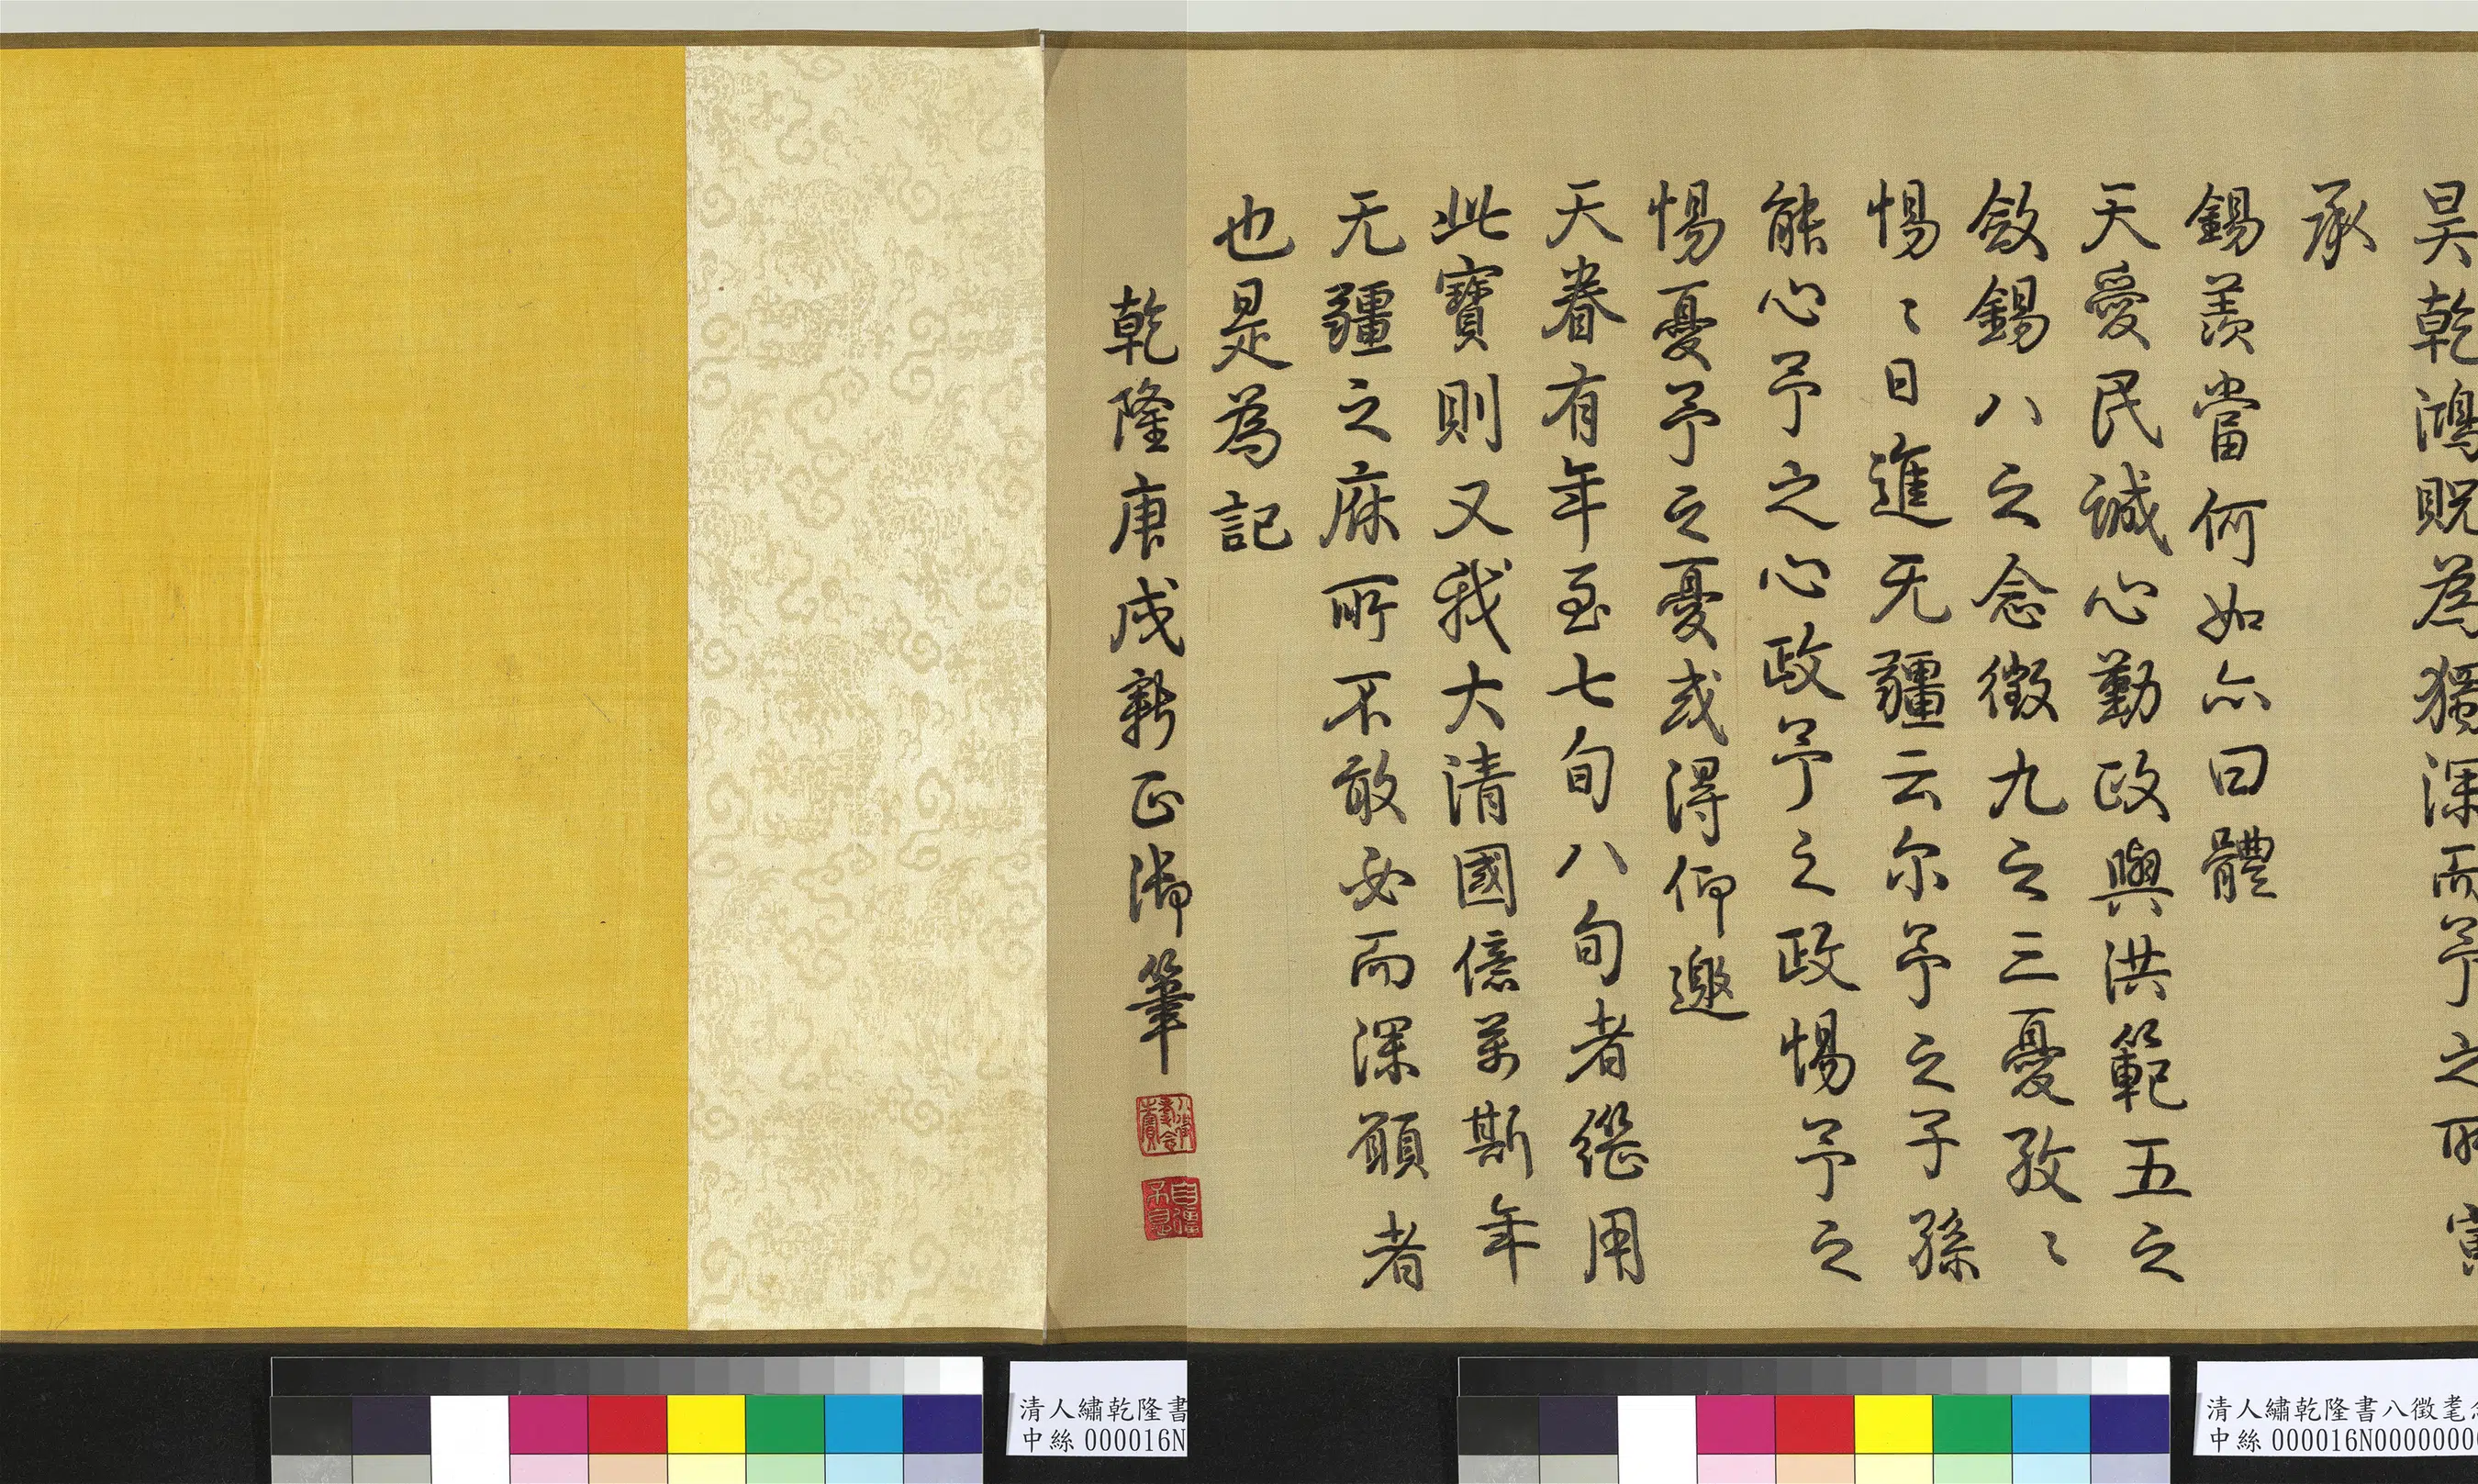 昊乾鴻貺為獨深而予之所
承
錫羨當何如亦曰體
天愛民誠心勤政與洪範五之
斂錫八之念徵九之三憂孜〻
惕〻日進无疆云尔予之子孫
能心予之心政予之政惕予之
惕憂予之憂或得仰邀
天眷有年至七旬八旬者繼用
此寶則又我大清國億萬斯年
无疆之庥所不敢必而深願者
也是為記
乾隆庚戌新正御筆
八徵耄念之寶
自彊不息
清人繡乾隆書
中絲000016N
清人繡乾隆書八徵耄
中絲000016N0000000